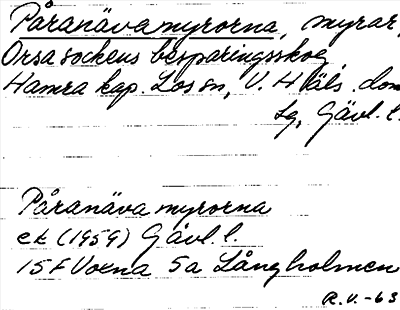 Påranäva myrorna, myrar,
Orsa sockens besparingsskog,
Hamra kap. Los sn, V. Häls. dom
sg, Gävl. l.
Påranäva myrorna
ek (1959) Gävl. l.
15F Voxna 5a Långholmen
R.V.-63